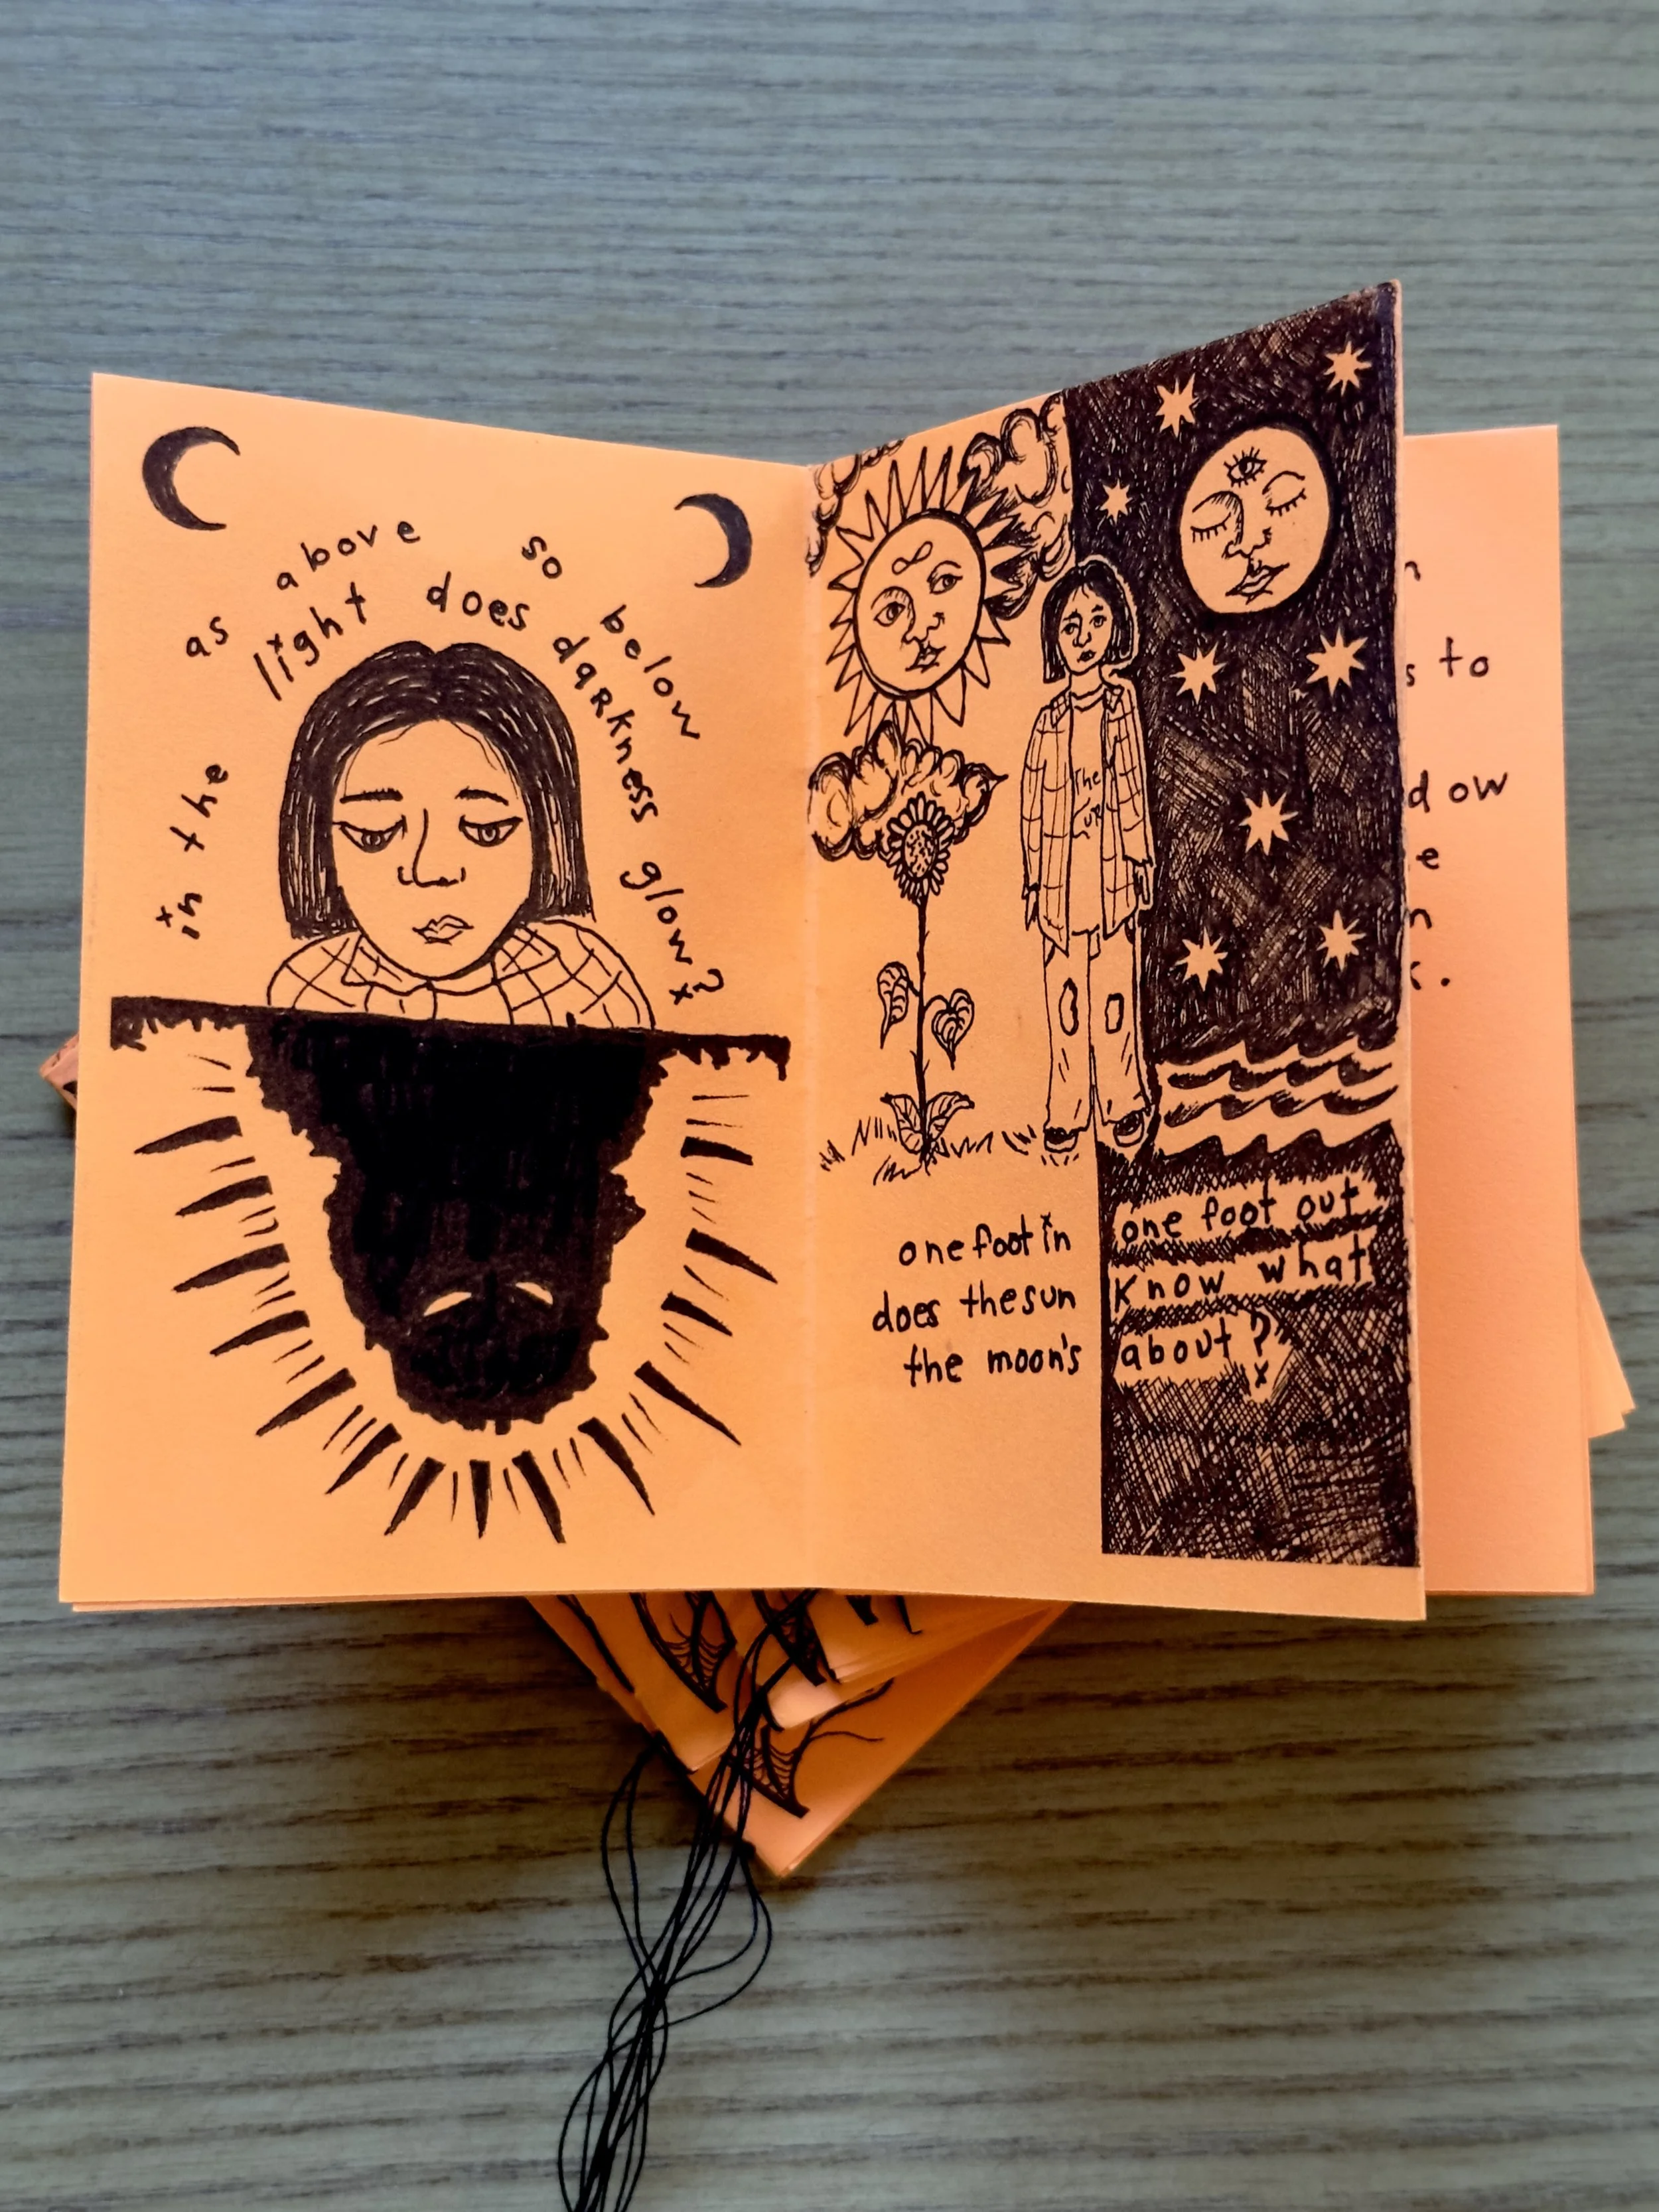 as above so below
in the light does darkness glow?
The
CUR
one foot in
does the sun
the moon's
one foot out
Know what
about?
s to
dow
e
n